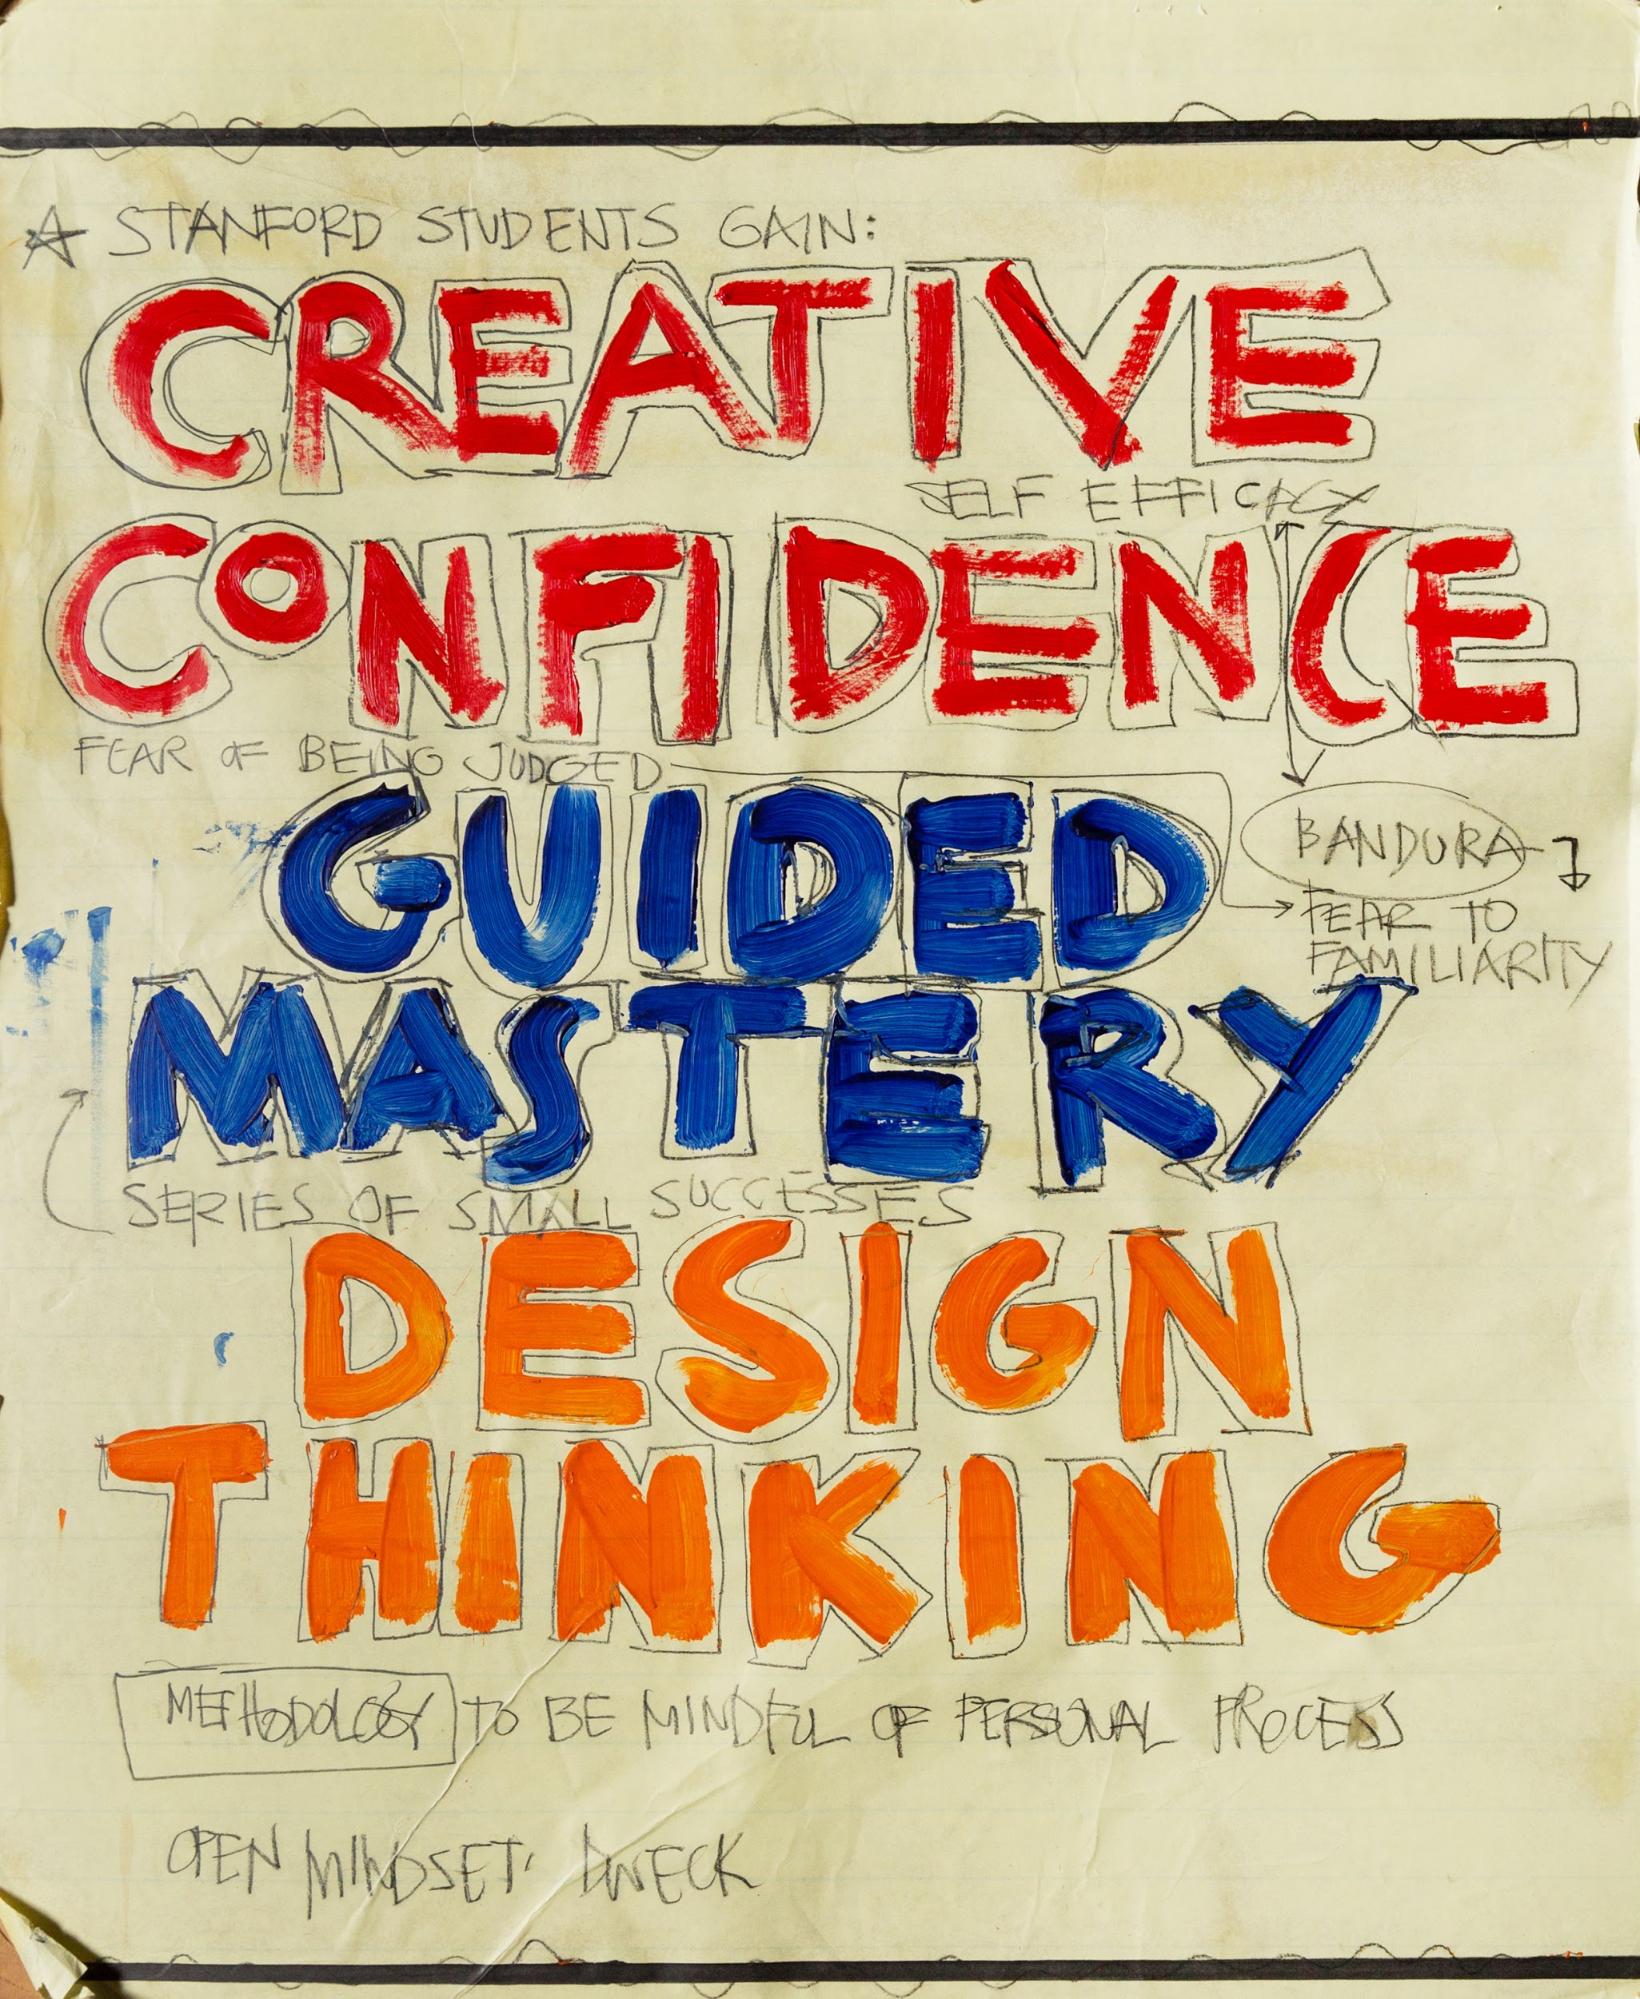 STANFORD STUDENTS GAIN:
CREATIVE
SELF EFFICACY
CONFIDENCE
FEAR OF BEING JUDGED
GUIDED
BANDURA
FEAR TO
FAMILIARITY
MASTERY
SERIES OF SMALL SUCCESSES
DESIGN
THINKING
METHODOLOGY TO BE MINDFUL OF PERSONAL PROCESS
OPEN MINDSET: DWECK